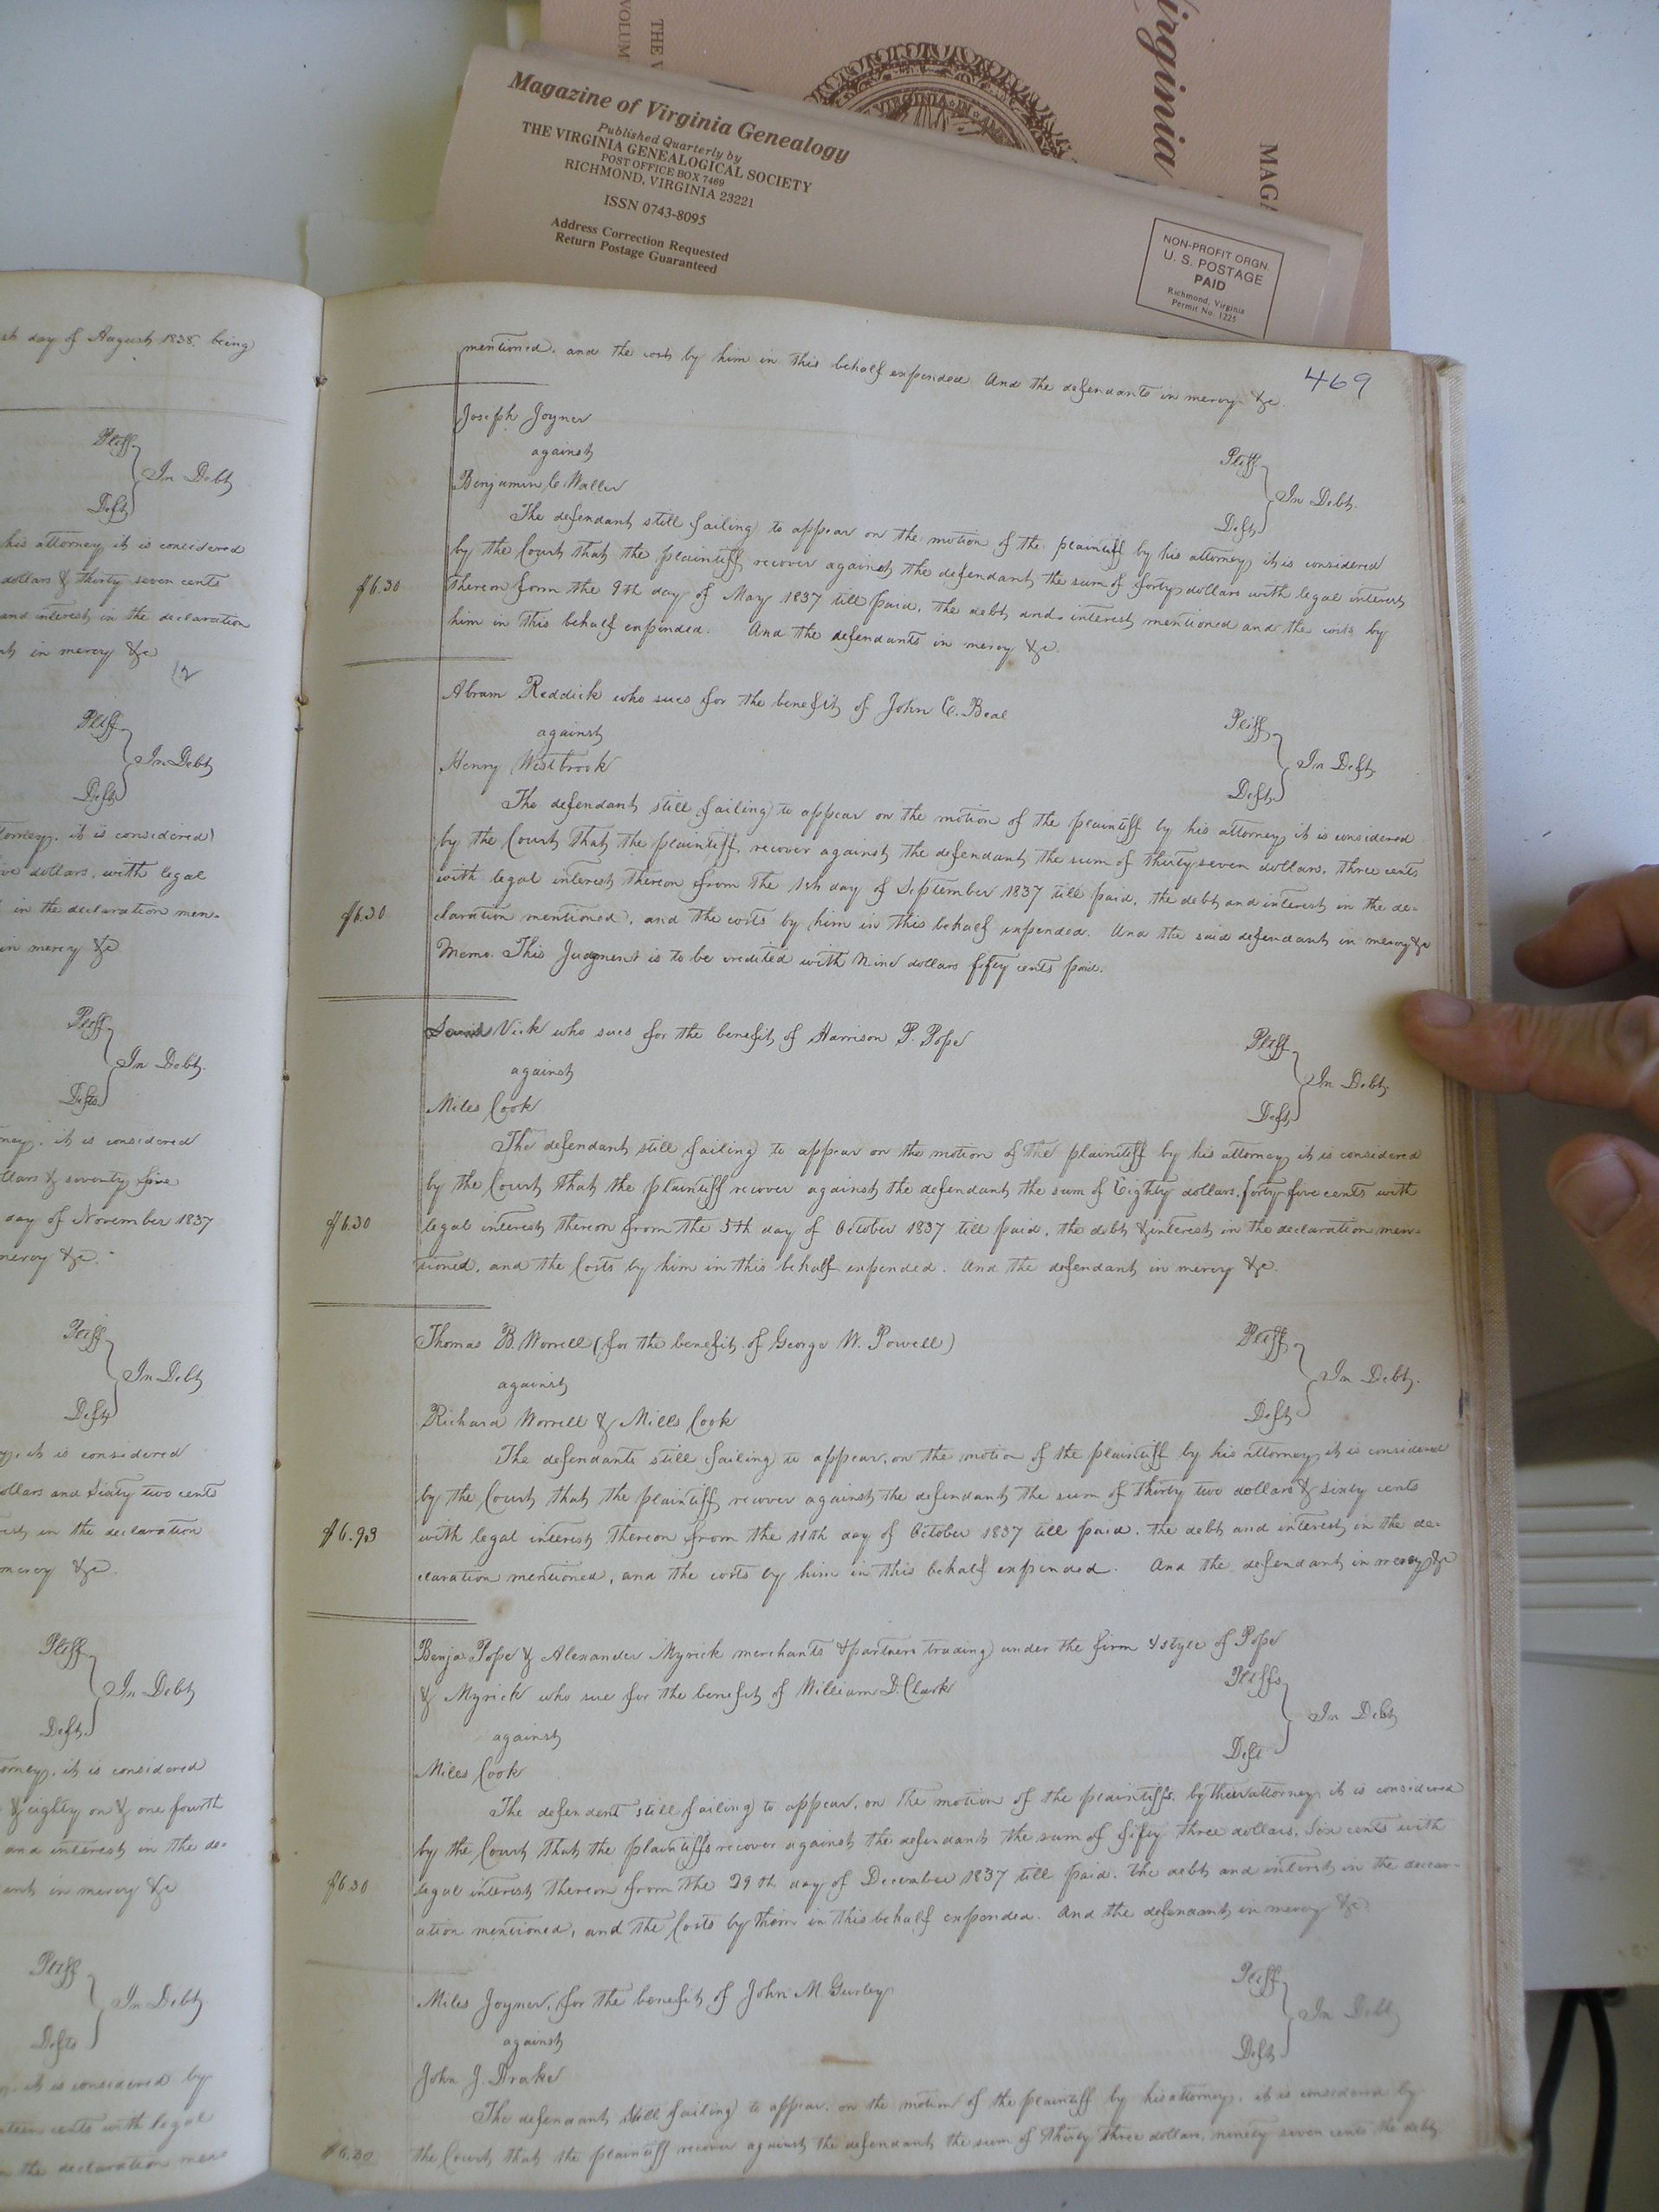 THE V
VOLUM
Virginia
MAGA
VIRGINIA IN
Magazine of Virginia Genealogy
Published Quarterly by
THE VIRGINIA GENEALOGICAL SOCIETY
POST OFFICE BOX 7469
RICHMOND, VIRGINIA 23221
ISSN 0743-8095
Address Correction Requested
Return Postage Guaranteed
NON-PROFIT ORGN.
U. S. POSTAGE
PAID
Richmond, Virginia
Permit No. 1225
day of August 1838. being
Pltff
In Debt
Deft
his attorney it is considered
dollars & thirty seven cents
and interest in the declaration
in mercy &c
Pltff
In Debt
Deft
it is considered
dollars, with legal
in the declaration men-
in mercy &c
Pltff
In Debt.
Defts
it is considered
& seventy five
day of November 1837
mercy &c.
Pltff
In Debt
Deft
it is considered
dollars and Sixty two cents
in the declaration
mercy &c.
Pltff
In Debt
Deft.
it is considered
& eighty on & one fourth
and interest in the de-
in mercy &c
Pltff
In Debt
Defts
it is considered by
cents with legal
the declaration men
469
mentioned. and the costs by him in this behalf expended And the defendants in mercy &c.
Joseph Joyner
Pltff
against
In Debt.
Benjamin C Waller
Deft
The defendant still failing to appear on the motion of the plaintiff by his attorney it is considered
by the Court that the plaintiff recover against the defendant the sum of forty dollars with legal interest
$6.30
thereon from the 9th day of May 1837 till paid, the debt and interest mentioned and the costs by
him in this behalf expended. And the defendants in mercy &c.
Abram Reddick who sues for the benefit of John C. Beal
Pltff
against
In Deft
Henry Westbrook
Deft
The defendant still failing to appear on the motion of the plaintiff by his attorney it is considered
by the Court that the plaintiff, recover against the defendant the sum of thirty seven dollars, three cents
with legal interest thereon from the 1st day of September 1837 till paid, the debt and interest in the de-
$6.30
claration mentioned, and the costs by him in this behalf expended. And the said defendant in mercy &c
Memo. This Judgment is to be credited with Nine dollars fifty cents paid.
Vick who sues for the benefit of Harrison P. Pope
Pltff
against
In Debt
Miles Cook
Deft
The defendant still failing to appear on the motion of the plaintiff by his attorney it is considered
by the Court that the plaintiff recover against the defendant the sum of Eighty dollars, forty-five cents with
$6.30
legal interest thereon from the 5th day of October 1837 till paid, the debt & interest in the declaration men-
tioned, and the Costs by him in this behalf expended. And the defendant in mercy &c.
Thomas B. Worrell (for the benefit of George W. Powell)
Pltff
against
In Debt.
Richard Worrell & Mills Cook
Deft
The defendants still failing to appear, on the motion of the plaintiff by his attorney it is considered
by the Court that the plaintiff recover against the defendant the sum of thirty two dollars & sixty cents
$6.93
with legal interest thereon from the 11th day of October 1837 till paid. the debt and interest in the de-
claration mentioned, and the costs by him in this behalf expended. And the defendant in mercy &c
Benja. Pope & Alexander Myrick merchants & partners trading under the firm & style of Pope
& Myrick who sue for the benefit of William D. Clark
Pltffs
against
In Debt
Miles Cook
Deft
The defendent still failing to appear, on the motion of the plaintiffs by their attorney it is considered
by the Court that the plaintiffs recover against the defendant the sum of fifty three dollars, Six cents with
$6.30
legal interest thereon from the 29th day of December 1837 till paid. the debt and interest in the declar-
ation mentioned, and the Costs by them in this behalf expended. And the defendant in mercy &c
Miles Joyner, for the benefit of John M Gurley
Pltff
against
In Debt
John J. Drake
Deft
The defendant still failing to appear, on the motion of the plaintiff by his attorney, it is considered by
$6.30
the Court that the plaintiff recover against the defendant the sum of thirty three dollars, ninety seven cents the debt